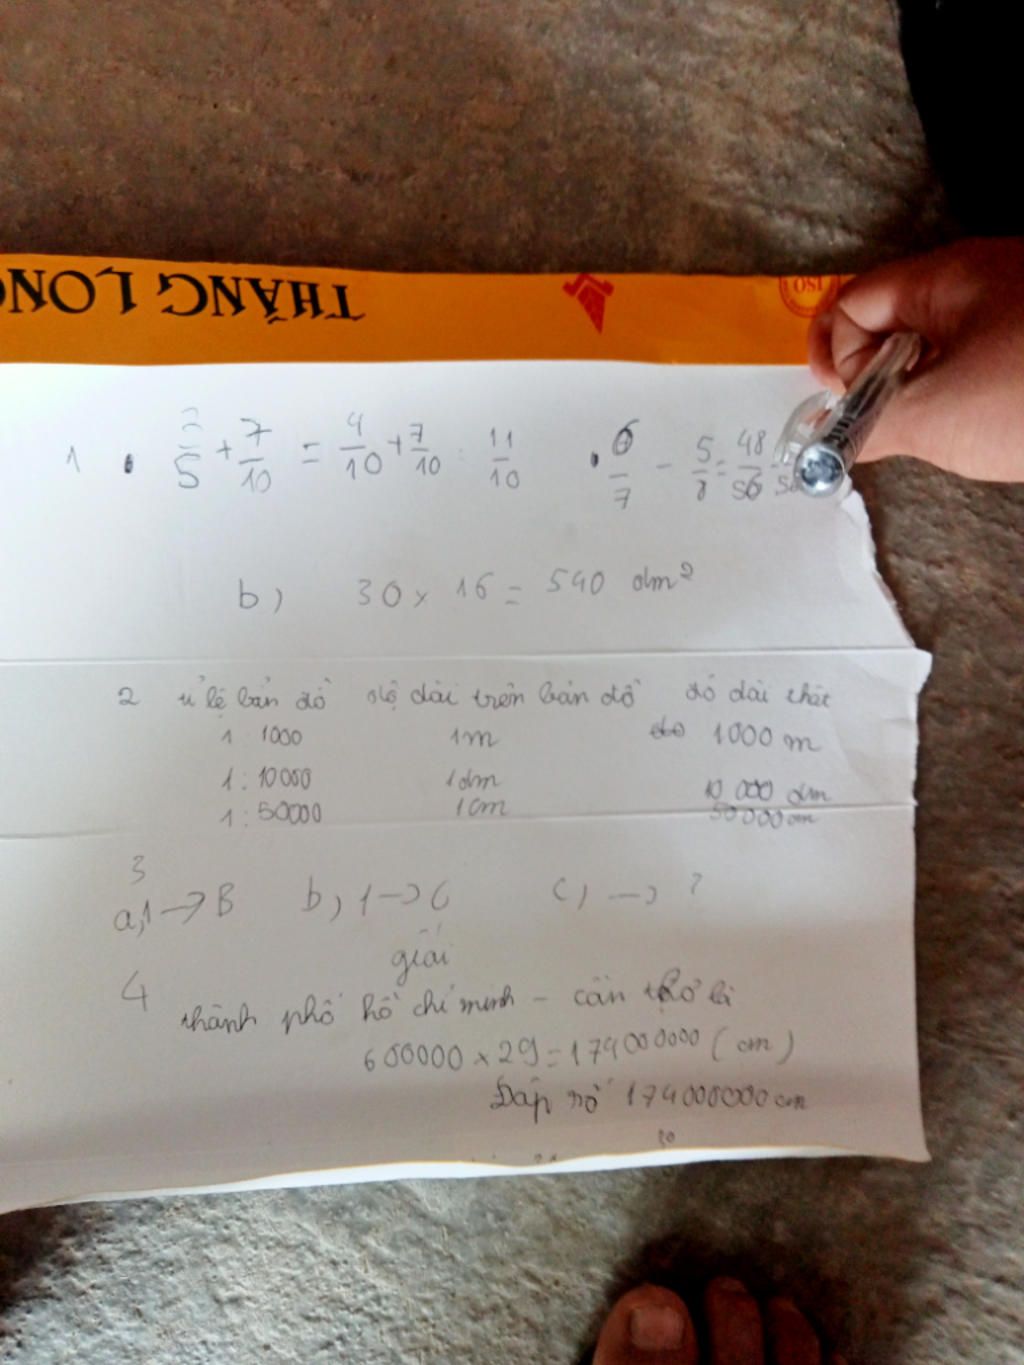 THĂNG LONG
ISO
1 . 2/5 + 7/10 = 4/10 + 7/10 : 11/10 . 6/7 - 5/8 = 48/56
b) 30 x 16 = 540 dm²
2 tỉ lệ bản đồ độ dài trên bản đồ độ dài thật
1 : 1000 1m 1000 m
1 : 10000 1dm 10 000 dm
1 : 50000 1cm 50000cm
3
a, 1 → B b, 1 → C c, → ?
giải
4 thành phố hồ chí minh - cần thơ là
600000 x 29 = 174000000 (cm)
Đáp số 174000000 cm